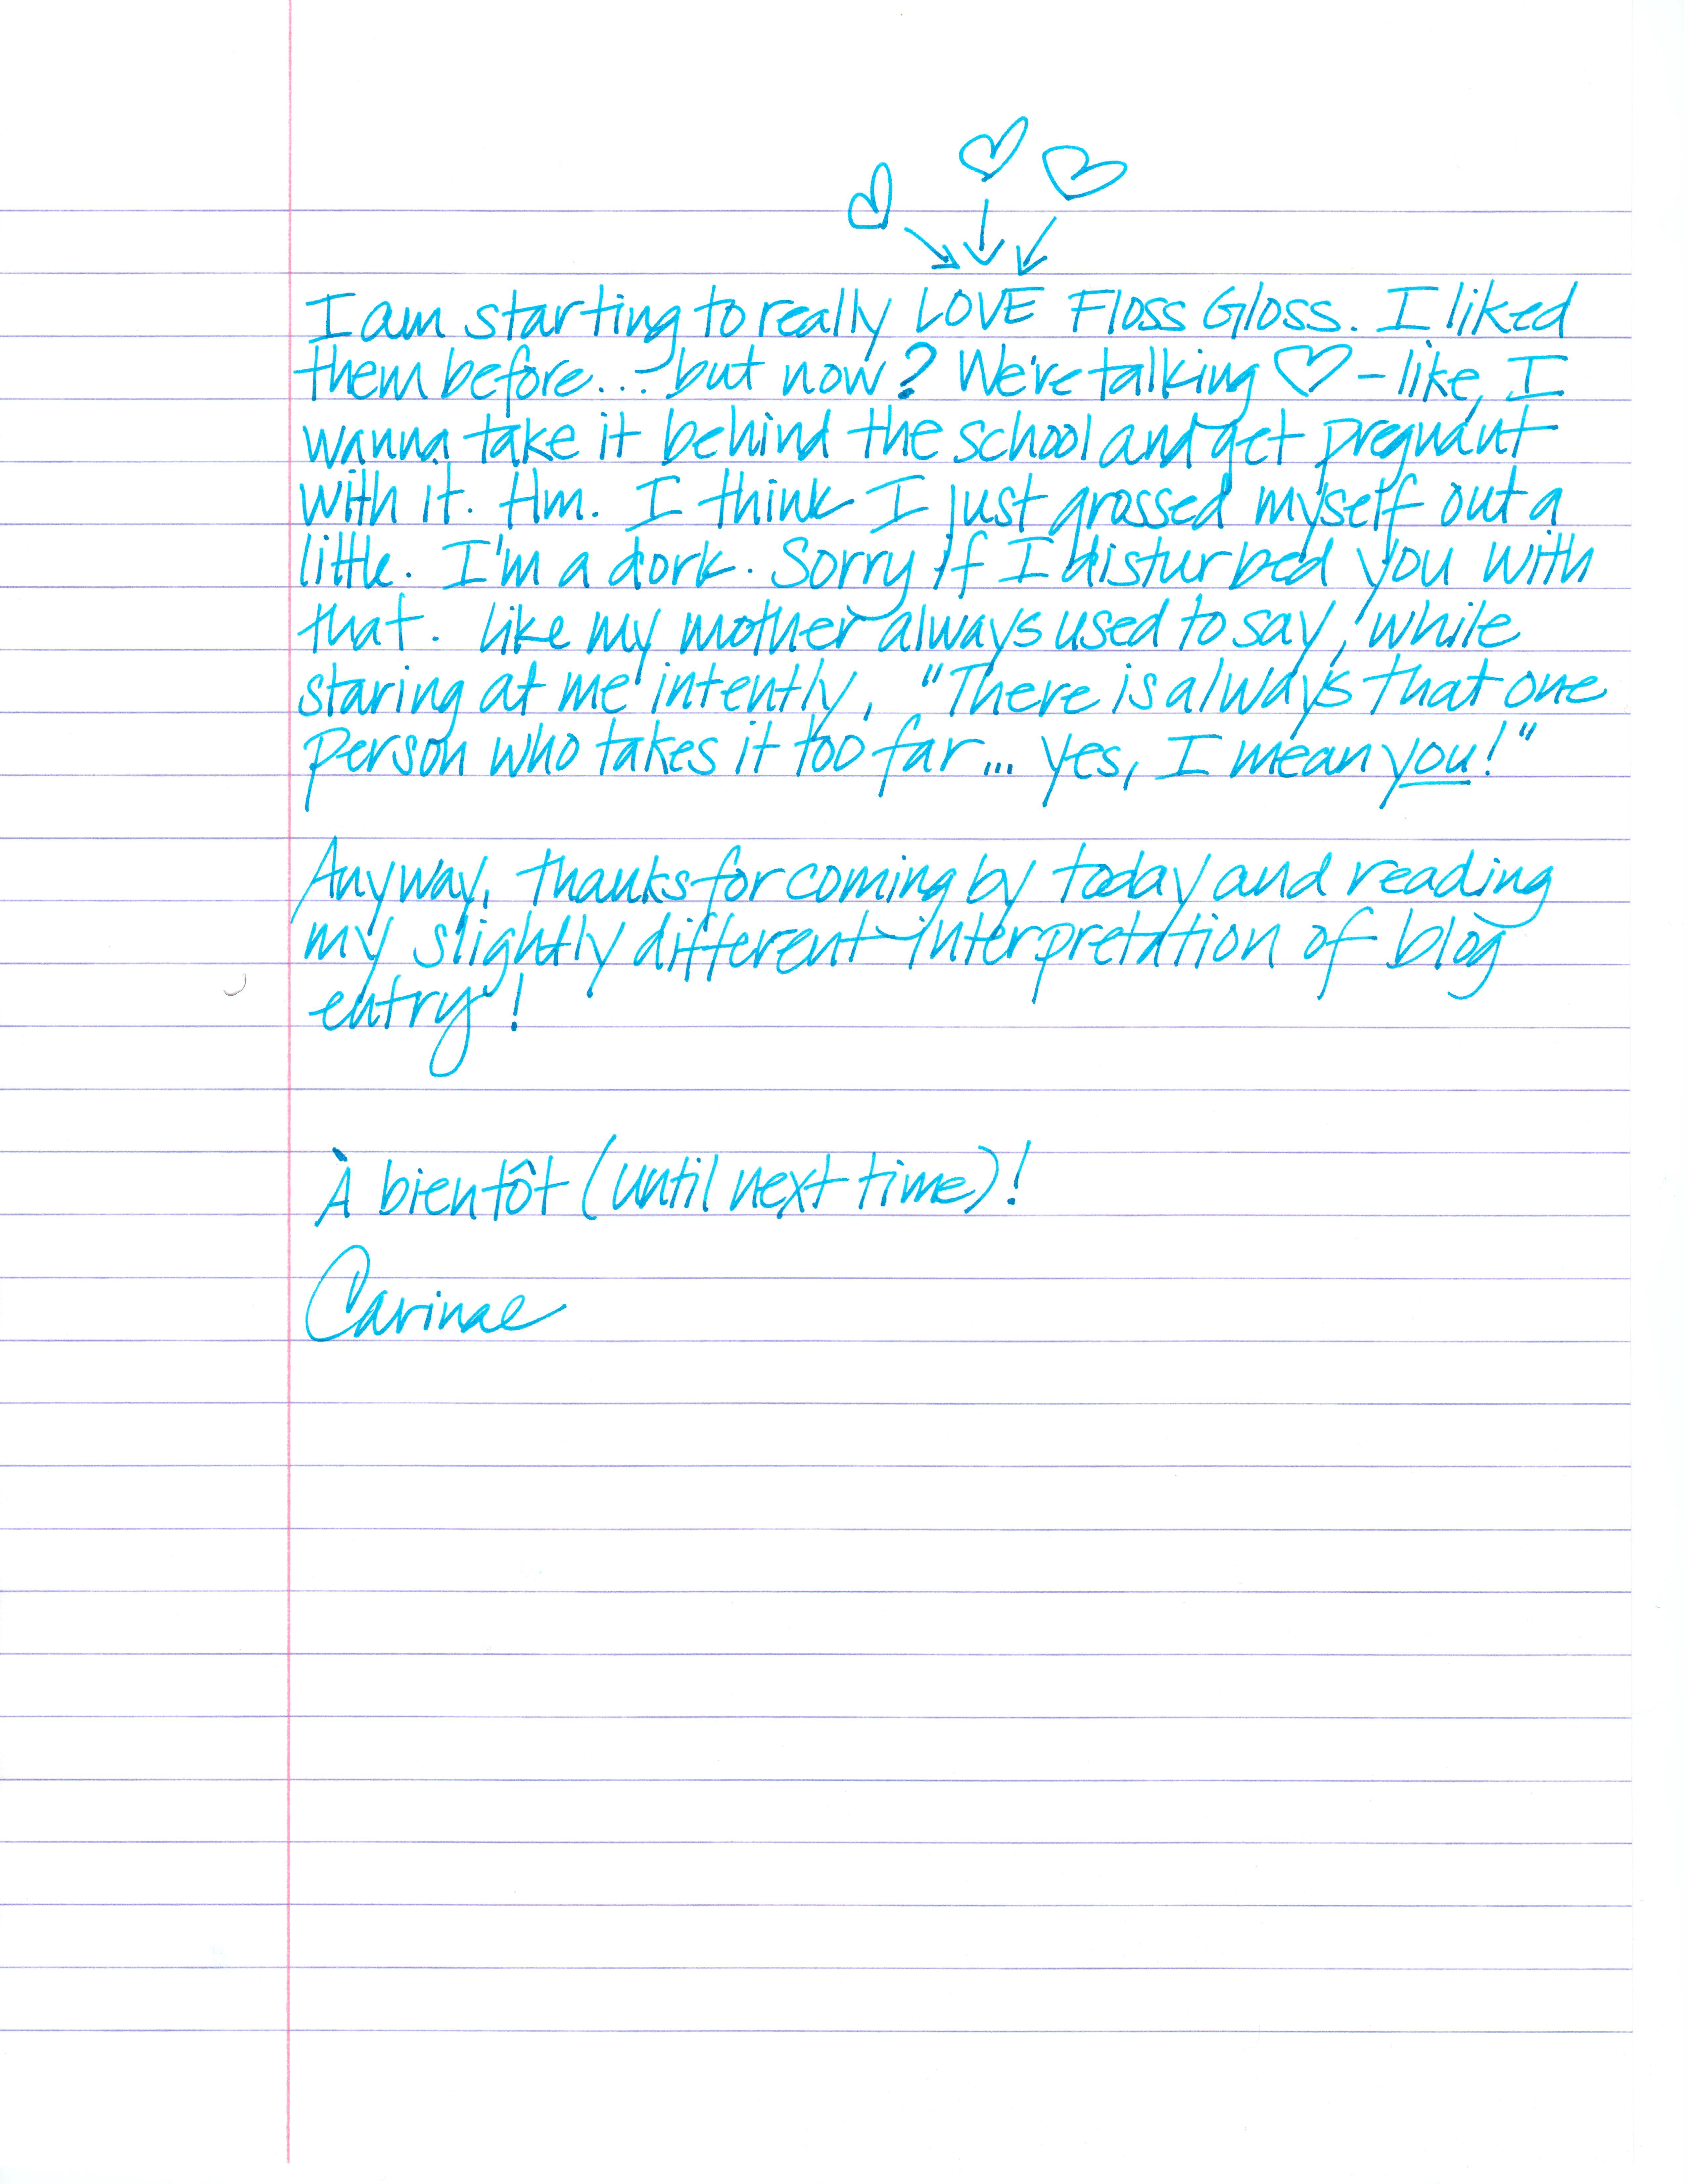 I am starting to really LOVE Floss Gloss. I liked
them before... but now? We're talking ♡ - like, I
wanna take it behind the school and get pregnant
with it. Hm. I think I just grossed myself out a
little. I'm a dork. Sorry if I disturbed you with
that. Like my mother always used to say, while
staring at me intently, "There is always that one
person who takes it too far... yes, I mean you!"
Anyway, thanks for coming by today and reading
my slightly different interpretation of blog
entry!
À bientôt (until next time)!
Carinae